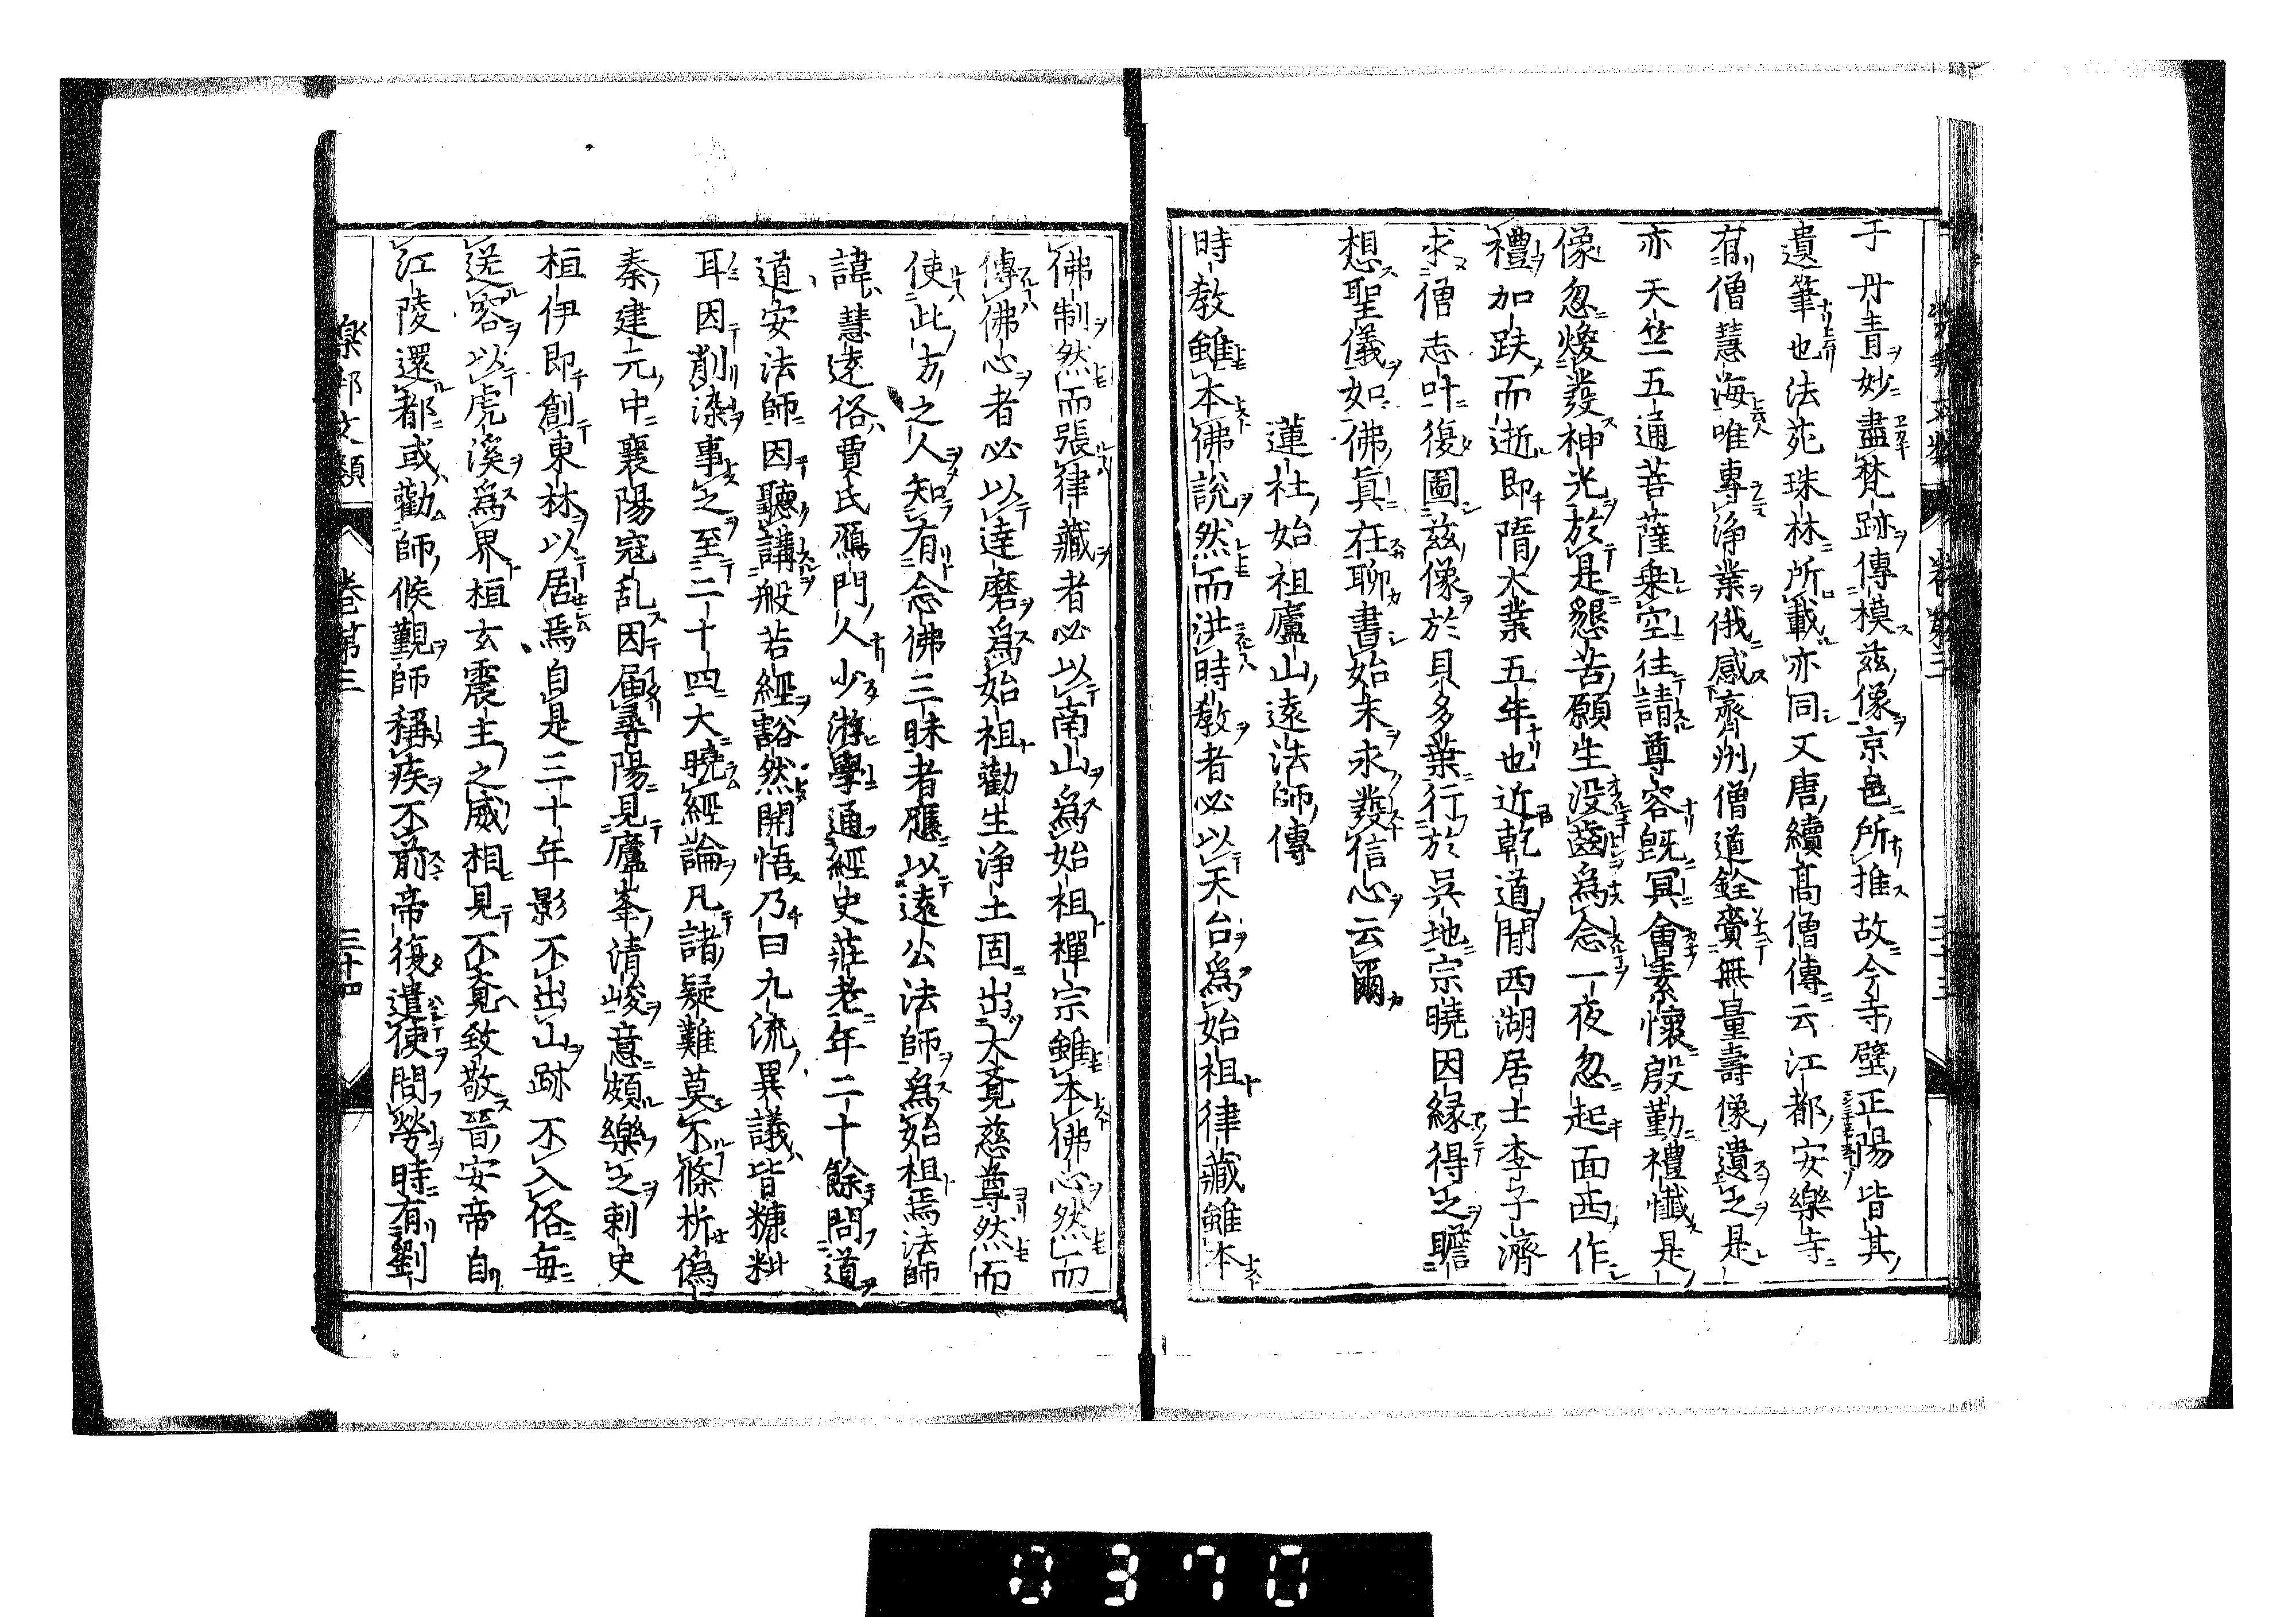 于丹青妙盡梵跡傳模茲像京邑所推故今寺壁正陽皆其
遺筆也法苑珠林所載亦同又唐續高僧傳云江都安樂寺
有僧慧海唯專淨業俄感齊州僧道銓賷無量壽像遺之是
亦天竺五通菩薩乗空往請尊容既冥會素懷殷勤禮懺是
像忽煥發神光於是懇苦願生没齒為念一夜忽起面西作
禮加趺而逝即隋大業五年也近乾道間西湖居士李子濟
求僧志叶復圖茲像於貝多葉行於吳地宗曉因緣得之瞻
想聖儀如佛真在聊書始末永發信心云爾
蓮社始祖廬山遠法師傳
時教雖本佛説然而洪時教者必以天台為始祖律藏雖本
佛制然而張律藏者必以南山為始祖禪宗雖本佛心然而
傳佛心者必以達磨為始祖勸生淨土固出大覔慈尊然而
使此方之人知有念佛三昧者應以遠公法師為始祖焉法師
諱慧遠俗賈氏鴈門人少游學通經史莊老年二十餘問道
道安法師因聽講般若經豁然開悟乃曰九流異議皆糠粃
耳因削染事之至二十四大曉經論凡諸疑難莫不條析偽
秦建元中襄陽寇乱因届尋陽見廬峯清峻意頗樂之刺史
桓伊即創東林以居焉自是三十年影不出山跡不入俗每
送客以虎溪為界桓玄震主之威相見不覔致敬晉安帝自
江陵還都或勸師候覲師稱疾不前帝復遣使問勞時有劉
樂邦文類
卷第三
三十四
0370